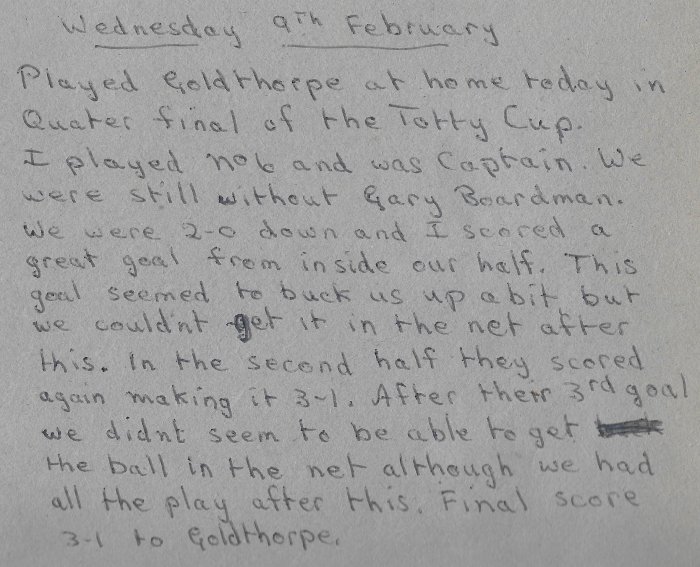 Wednesday 9th February
Played Goldthorpe at home today in
Quater final of the Totty Cup.
I played no6 and was Captain. We
were still without Gary Boardman.
We were 2-0 down and I scored a
great goal from inside our half. This
goal seemed to buck us up a bit but
we could'nt get it in the net after
this. In the second half they scored
again making it 3-1. After their 3rd goal
we didnt seem to be able to get
the ball in the net although we had
all the play after this. Final score
3-1 to Goldthorpe.